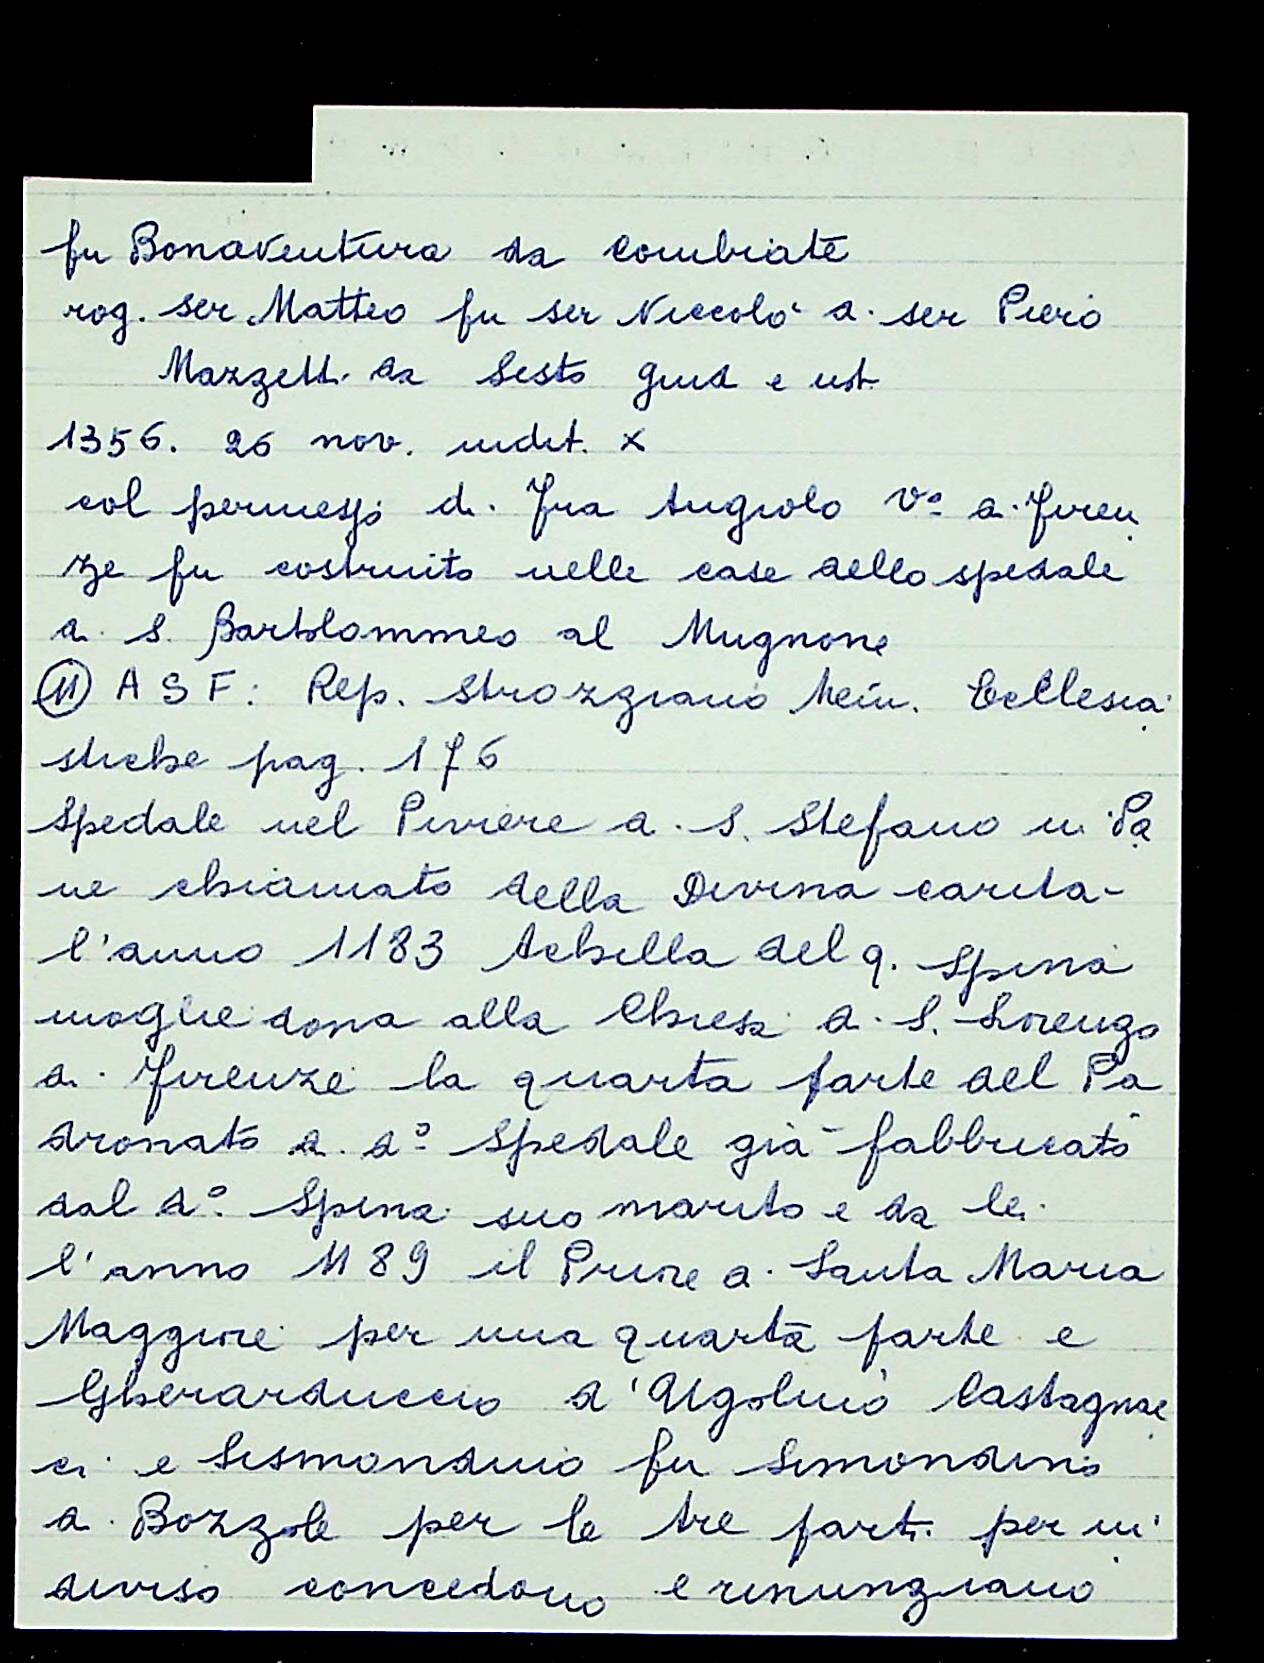 fu Bonaventura da Combiate
rog. ser Matteo fu ser Niccolò di ser Piero
Mazzetti da Sesto giud e not.
1356. 26 nov. indit. X
col permesso di Fra Angiolo Vo di Firen
ze fu costruito nelle case dello spedale
di S. Bartolommeo al Mugnone
(11) A S F: Rep. Strozziano Mem. Ecclesia
stiche pag. 176
Spedale nel Piviere di S. Stefano in Pa
ne chiamato della Divina carità
l'anno 1183 Achilla del q. Spina
moglie dona alla Chiesa di S. Lorenzo
di Firenze la quarta parte del Pa
dronato di do Spedale già fabbricato
dal do Spina suo marito e da lei
l'anno 1189 il Priore di Santa Maria
Maggiore per una quarta parte e
Gherarduccio d'Ugolino Castagnac
ci e Sismondino fu Simondino
di Bozzole per le tre parti per in
diviso concedono e rinunziano